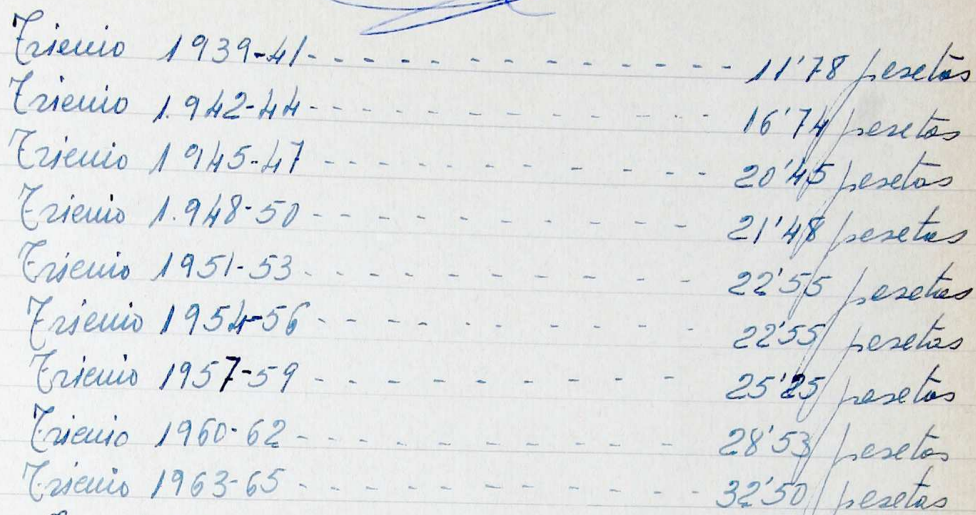 Trienio 1939-41- - - - - - - - - - - - - - - 11'78 pesetas
Trienio 1.942-44- - - - - - - - - - - - - - 16'74 pesetas
Trienio 1945-47 - - - - - - - - - - - 20'45 pesetas
Trienio 1.948-50 - - - - - - - - - - - 21'48 pesetas
Trienio 1951-53 - - - - - - - - - - - 22'55 pesetas
Trienio 1954-56 - - - - - - - - - - - 22'55 pesetas
Trienio 1957-59 - - - - - - - - - - - 25'25 pesetas
Trienio 1960-62 - - - - - - - - - - - 28'53 pesetas
Trienio 1963-65 - - - - - - - - - - - 32'50 pesetas